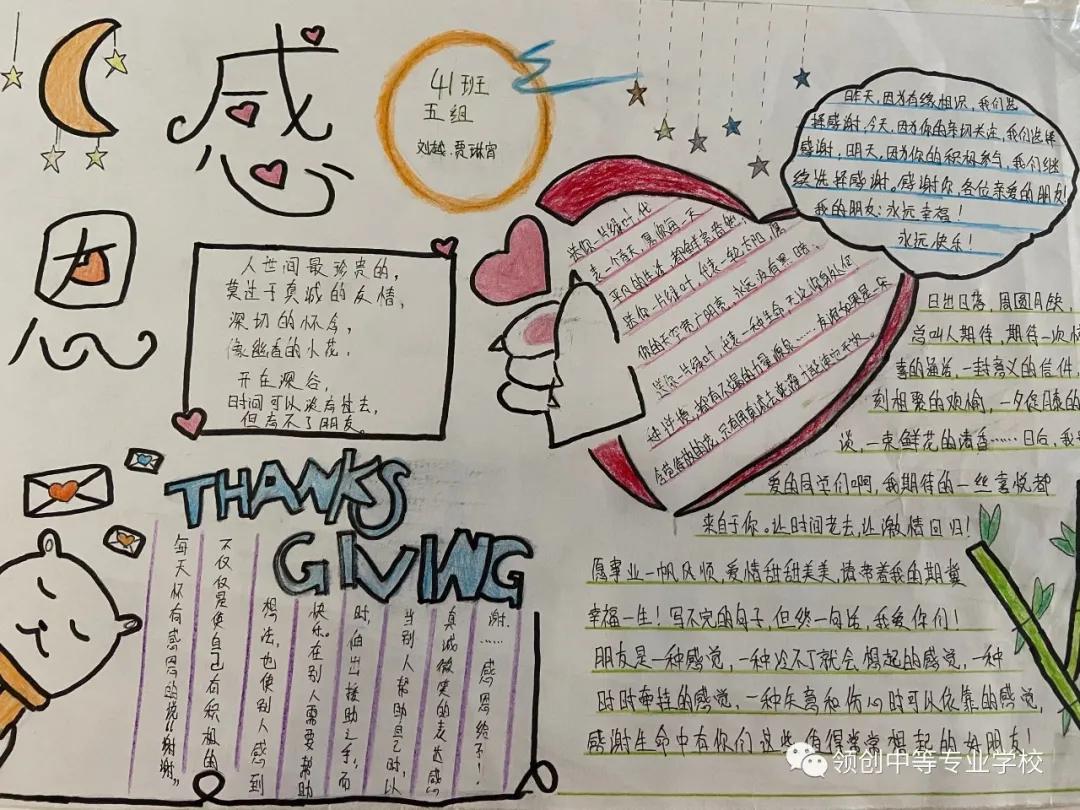 感
恩
41班
五组
刘越.贾琳宵
人世间最珍贵的，
莫过于真诚的友情，
深切的怀念，
像幽香的小花，
开在深谷，
时间可以淡去过去，
但忘不了朋友。
昨天，因为有缘相识，我们选
择感谢，今天，因为你的亲切关注，我们选择
感谢，明天，因为你的积极参与，我们继
续选择感谢。感谢你，各位亲爱的朋友！
我的朋友：永远幸福！
永远快乐！
送你一片绿叶，代
表一个春天，愿你每一天
平凡的生活，都
送你一片绿叶，代表一轮太阳，愿
你的天空宽广明亮，永远没有黑暗；
送你一片绿叶，代表一种生命，无论你身处任
何逆境，都有不竭的力量源泉……友谊如果是一朵
含苞待放的花，只有用真诚去灌溉才能使它开放。
日出日落，周圆月缺，
总叫人期待，期待一次惊
喜的通话，一封意义的信件，
刻相聚的欢愉，一夕促膝的
谈，一束鲜花的清香……日后，我
爱的同学们啊，我期待的一丝喜悦都
来自于你。让时间老去，让激情回归！
愿事业一帆风顺，爱情甜甜美美，请带着我的期冀
幸福一生！写不完的句子，但然一句话，我爱你们！
朋友是一种感觉，一种冷不丁就会想起的感觉，一种
时时牵挂的感觉，一种失意和伤心时可以依靠的感觉，
感谢生命中有你们这些值得常常想起的好朋友！
THANKS
GIVING
谢.……感恩给予！
真诚微笑的表达感
当别人帮助自己时，以
时，伸出援助之手，而
快乐。在别人需要帮助
想法，也使别人感到
不仅仅是使自己有积极的
每天怀有感恩的说"谢谢"
领创中等专业学校